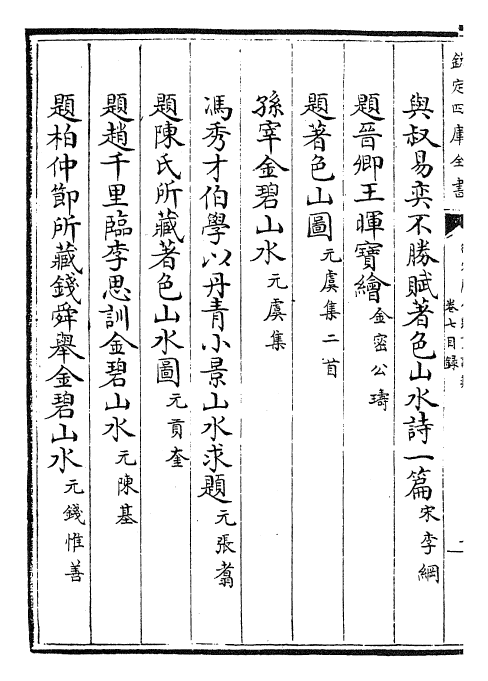 欽定四庫全書
卷七目録
與叔易奕不勝賦著色山水詩一篇 宋李綱
題晉卿王暉寶繪 金密公璹
題著色山圖 元虞集二首
孫宰金碧山水 元虞集
馮秀才伯學以丹青小景山水求題 元張翥
題陳氏所藏著色山水圖 元貢奎
題趙千里臨李思訓金碧山水 元陳基
題柏仲節所藏錢舜舉金碧山水 元錢惟善